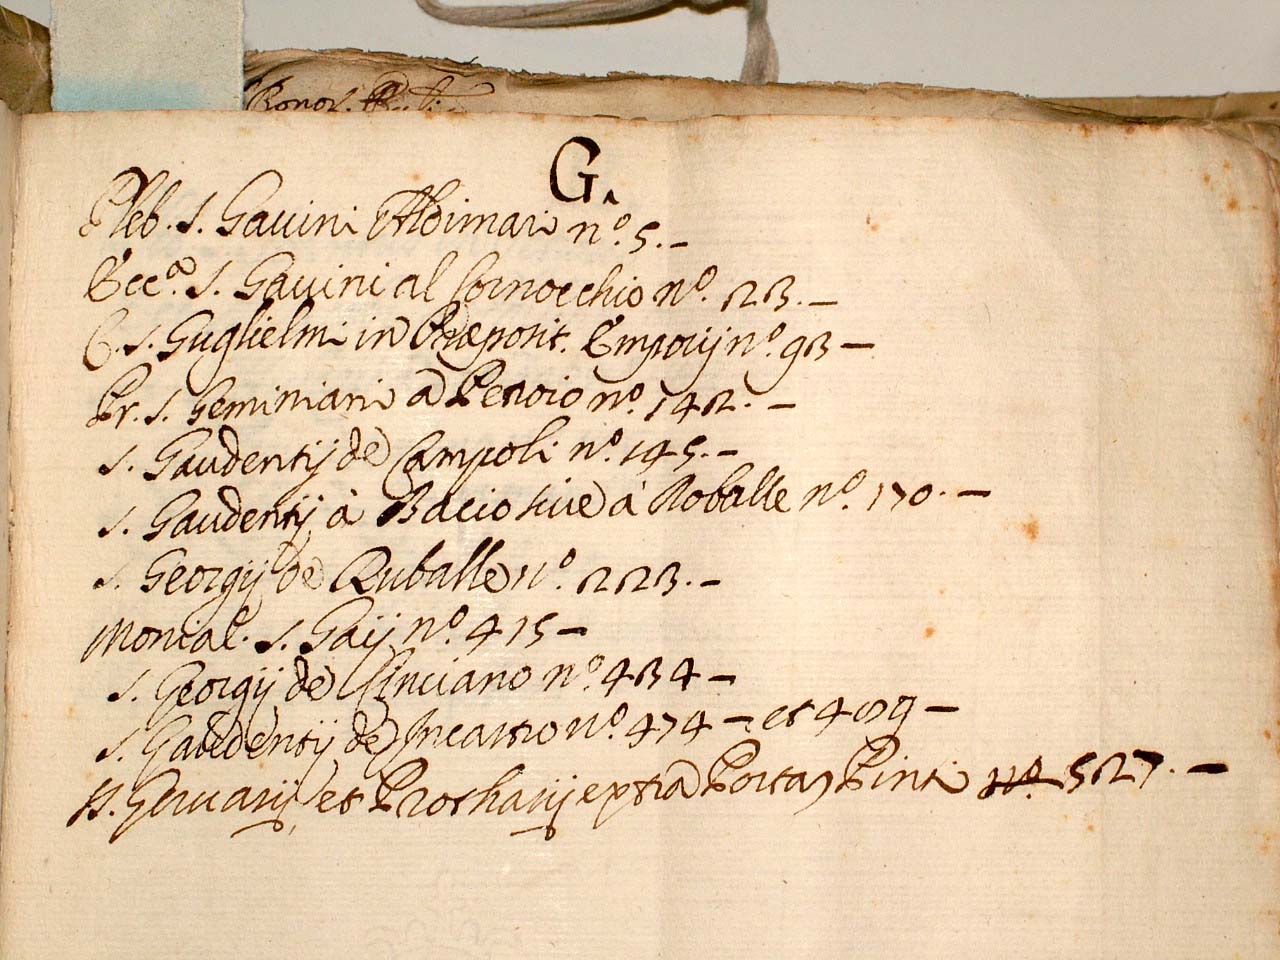 G.
Pleb. S. Gauini Adimari nº. 5. –
Eccª. S. Gauini al Cornocchio nº. 23. –
C. S. Guglielmi in Præposit. Emporij nº. 93 –
Pr. S. Geminiani a Petroio nº. 142. –
S. Gaudentij de Campoli nº. 145. –
S. Gaudentij à Bacio siue à Roballe nº. 170. –
S. Georgij de Ruballe nº. 223. –
Monial. S. Gaij nº. 415 –
S. Georgij de Cinciano nº. 434 –
S. Gaudentij de Incastro nº. 474 – et 409 –
SS. Geruasij et Prothasij extra Portam Pinti nº. 527. –